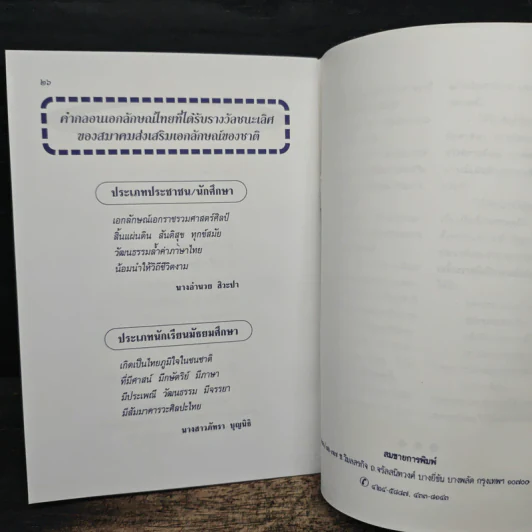 ๒๖
คำกลอนเอกลักษณ์ไทยที่ได้รับรางวัลชนะเลิศ
ของสมาคมส่งเสริมเอกลักษณ์ของชาติ
ประเภทประชาชน/นักศึกษา
เอกลักษณ์เอกราชรวมศาสตร์ศิลป์
สิ้นแผ่นดิน สันติสุข ทุกข์สมัย
วัฒนธรรมล้ำค่าภาษาไทย
น้อมนำให้วิถีชีวิตงาม
นางอำนวย
ประเภทนักเรียนมัธยมศึกษา
เกิดเป็นไทยภูมิใจในชนชาติ
ที่มีศาสน์ มีกษัตริย์ มีภาษา
มีประเพณี วัฒนธรรม มีจรรยา
มีสัมมาคารวะศิลปะไทย
นางสาวภัทรา บุญนิธิ
สมชายการพิมพ์
ซ.วิมลสรกิจ ถ.จรัลสนิทวงศ์ บางยี่ขัน บางพลัด กรุงเทพฯ ๑๐๗๐๐